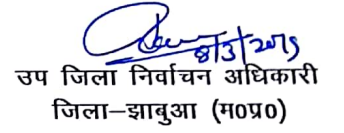 8/3/2019
उप जिला निर्वाचन अधिकारी
जिला–झाबुआ (म०प्र०)